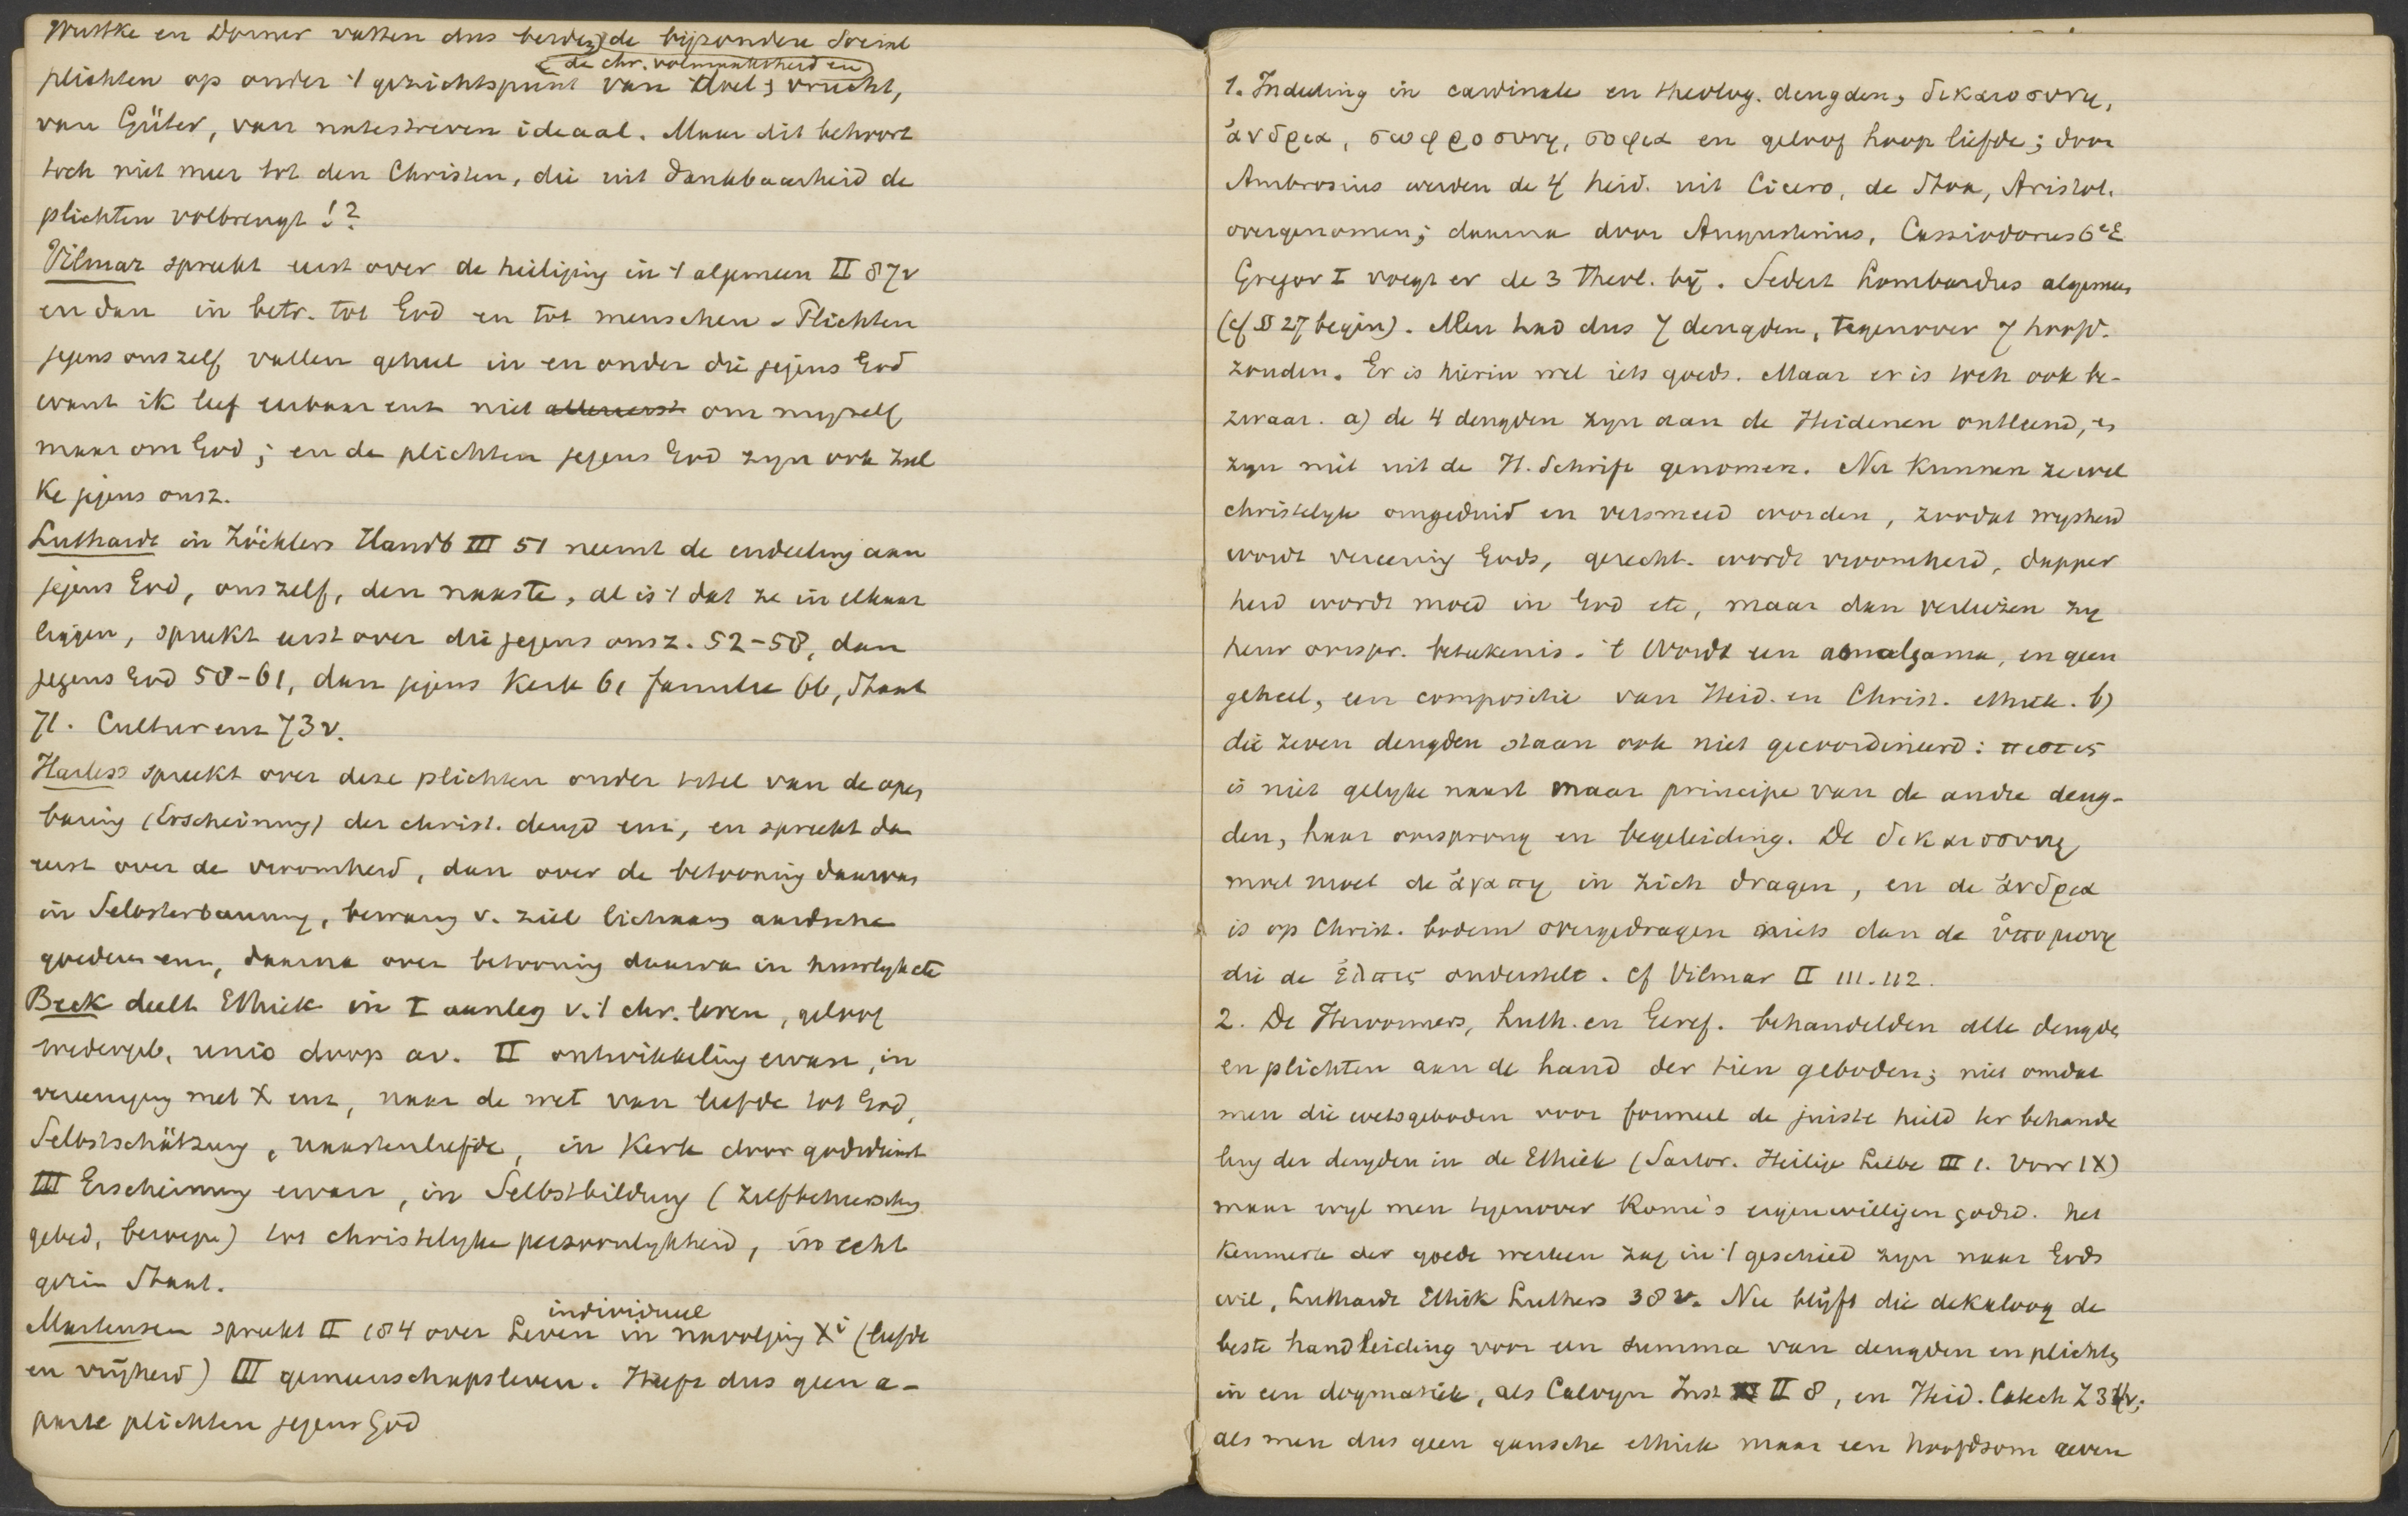 Wuttke en Dorner vatten dus beiden de bijzondere Social
(de chr. volmaaktheid en)
plichten op onder 't gezichtspunt van doel, vrucht,
van Güter, van natestreven ideaal. Maar dit behoort
toch niet meer tot den Christen, die uit dankbaarheid de
plichten volbrengt!?
Vilmar spreekt eerst over de heiliging in 't algemeen II 87v
en dan in betr. tot God en tot menschen. Plichten
jegens onszelf vallen geheel in en onder die jegens God
want ik leef eerbaar enz niet allereerst om mijzelf
maar om God; en de plichten jegens God zijn ook zul
ke jegens onsz.
Luthardt in Zöcklers Handb III 51 neemt de indeeling aan
jegens God, onszelf, den naaste, al is 't dat ze in elkaar
liggen, spreekt eerst over die jegens onsz. 52-58, dan
jegens God 58-61, dan jegens Kerk 61 familie 66, Staat
71. Cultur enz 73v.
Harless spreekt over deze plichten onder titel van de open
baring (Erscheinung) der christ. deugd enz, en spreekt dan
eerst over de vroomheid, dan over de betooning daarvan
in Selbsterbauung, bewaring v. ziel lichaam aardsche
goederen enz, daarna over betooning daarvan in huwlyk etc
Beck deelt Ethiek in I aanleg v. 't chr. leven, geloof
wedergeb, unio doop av. II ontwikkeling ervan, in
vereeniging met X enz, naar de wet van liefde tot God,
Selbstschätzung, naastenliefde, in Kerk door godsdienst
III Erscheinung ervan, in Selbstbildung (zelfbeheersching
gebed, beroep) tot christelyke persoonlykheid, in echt
gezin Staat.
individueel
Martensen spreekt II 184 over Leven in navolging Xi (liefde
en vrijheid) III gemeenschapsleven. Heeft dus geen a-
parte plichten jegens God
1. Indeeling in cardinale en theolog. deugden, δικαιοσυνη,
ἀνδρεια, σωφροσυνη, σοφια en geloof hoop liefde; door
Ambrosius werden de 4 heid. uit Cicero, de Stoa, Aristot.
overgenomen; daarna door Augustinus, Cassiodorus 6e E
Gregor I voegt er de 3 theol. bij. Sedert Lombardus algemeen
(cf § 27 begin). Men had dus 7 deugden, tegenover 7 hoofd-
zonden. Er is hierin wel iets goeds. Maar er is toch ook be-
zwaar. a) de 4 deugden zyn aan de Heidenen ontleend, en
zyn niet uit de H. Schrift genomen. Nu kunnen ze wel
christelyk omgeduid en versmeed worden, zoodat wysheid
wordt vereering Gods, gerecht. wordt vroomheid, dapper
heid wordt moed in God etc, maar dan verliezen zy
heur oorspr. beteekenis. 't Wordt een amalgama, en geen
geheel, een compositie van Heid. en Christ. ethiek. b)
die zeven deugden staan ook niet gecoordineerd: πιστις
is niet gelyke naast maar principe van de andre deug-
den, haar oorsprong en begeleiding. De δικαιοσυνη
moet moet de ἀγαπη in zich dragen, en de ἀνδρεια
is op Christ. bodem overgedragen niets dan de ὑπομονη
die de ἐλπις onderstelt. Cf Vilmar II 111.112.
2. De Hervormers, Luth. en Geref. behandelden alle deugden
en plichten aan de hand der tien geboden; niet omdat
men die wetsgeboden voor formeel de juiste hield ter behande
ling der deugden in de Ethiek (Sartor. Heilige Liebe III 1. Vorr IX)
maar wyl men tegenover Rome's eigenwilligen godsd. het
Kenmerk der goede werken zag in 't geschied zyn naar Gods
wil, Luthardt Ethik Luthers 38v. Nu blijft die dekaloog de
beste handleiding voor een summa van deugden en plichten
in een dogmatiek, als Calvyn Inst II 8, en Heid. Catech Z 34v;
als men dus geen gansche ethiek maar een hoofdsom geven